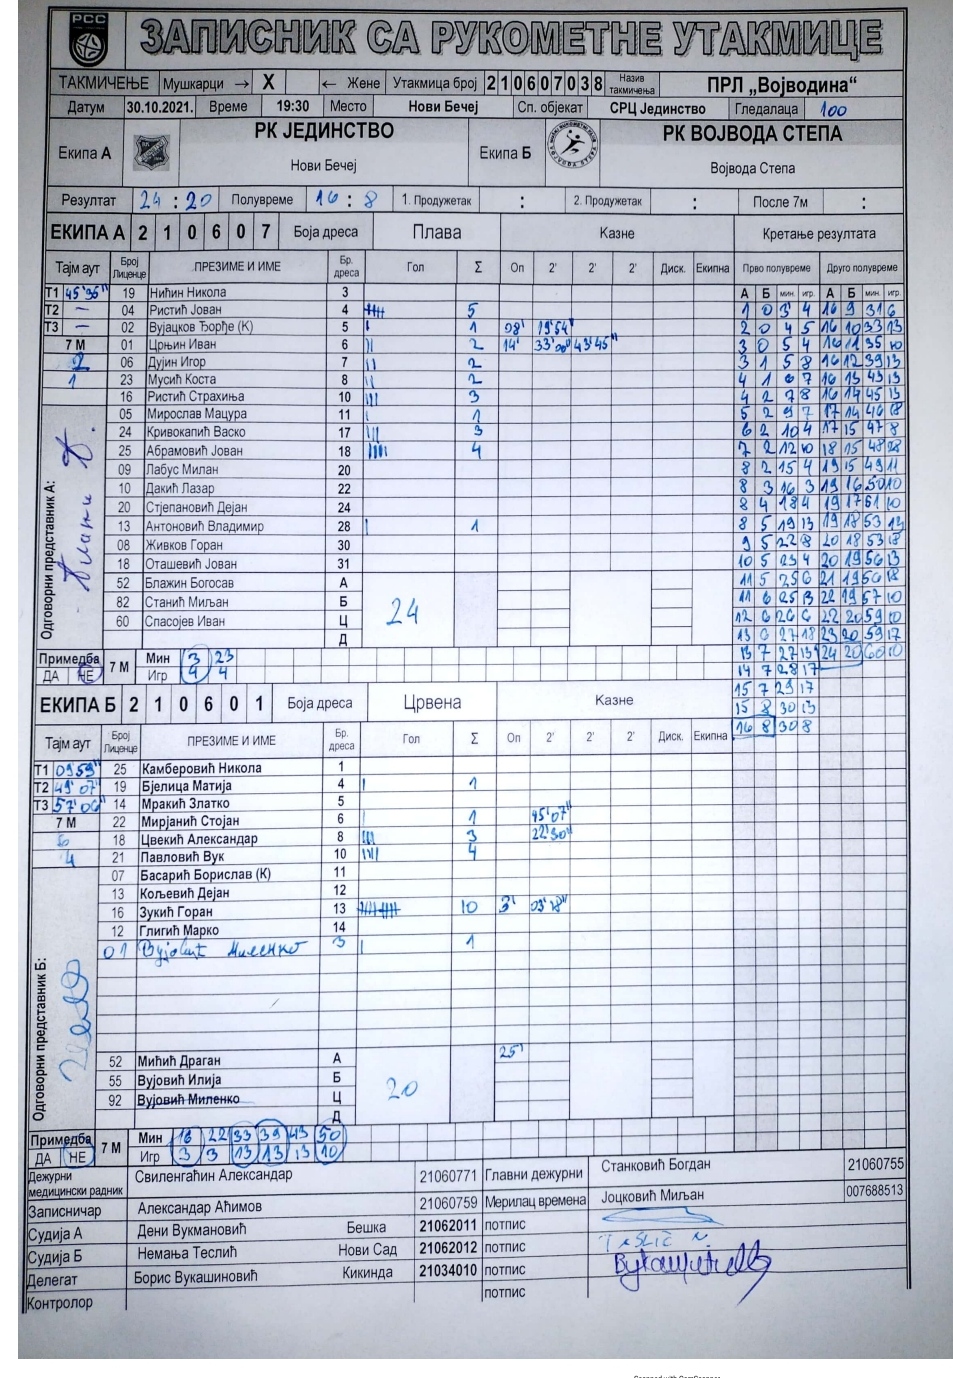 РСС
ЗАПИСНИК СА РУКОМЕТНЕ УТАКМИЦЕ
ТАКМИЧЕЊЕ Мушкарци → X ← Жене Утакмица број 210607038 Назив такмичења ПРЛ „Војводина“
Датум 30.10.2021. Време 19:30 Место Нови Бечеј Сп. објекат СРЦ Јединство Гледалаца 100
Екипа А РК ЈЕДИНСТВО Екипа Б РК ВОЈВОДА СТЕПА
Нови Бечеј Војвода Степа
Резултат 24 : 20 Полувреме 16 : 8 1. Продужетак : 2. Продужетак : После 7м :
ЕКИПА А 2 1 0 6 0 7 Боја дреса Плава Казне Кретање резултата
Тајм аут Број Лиценце ПРЕЗИМЕ И ИМЕ Бр. дреса Гол Σ Оп 2' 2' 2' Диск. Екипна Прво полувреме Друго полувреме
Т1 45'35" 19 Нићин Никола 3 А Б мин. игр. А Б мин. игр.
Т2 — 04 Ристић Јован 4 5 1 0 3' 4 16 9 31 6
Т3 — 02 Вујацков Ђорђе (К) 5 1 08' 19'54" 2 0 4 5 16 10 33 13
7 М 01 Црњин Иван 6 2 14' 33'00" 43'45" 3 0 5 4 16 11 35 10
2 06 Дујин Игор 7 2 3 1 5 8 16 12 39 13
1 23 Мусић Коста 8 2 4 1 6 7 16 13 43 13
16 Ристић Страхиња 10 3 4 2 7 8 16 14 45 13
05 Мирослав Мацура 11 1 5 2 9 7 17 14 46 18
24 Кривокапић Васко 17 3 6 2 10 4 17 15 47 8
25 Абрамовић Јован 18 4 7 2 12 10 18 15 48 28
09 Лабус Милан 20 8 2 15 4 19 15 49 11
10 Дакић Лазар 22 8 3 16 3 19 16 50 10
20 Стјепановић Дејан 24 8 4 18 4 19 17 51 10
13 Антоновић Владимир 28 1 8 5 19 13 19 18 53 13
08 Живков Горан 30 9 5 22 8 20 18 53 18
18 Оташевић Јован 31 10 5 23 4 20 19 56 13
52 Блажин Богосав А 11 5 25 6 21 19 56 18
82 Станић Миљан Б 24 11 6 25 13 22 19 57 10
60 Спасојев Иван Ц 12 6 26 6 22 20 59 10
Д 13 6 27 18 23 20 59 17
Одговорни представник А:
Примедба 7 М Мин 3 23 13 7 27 13 24 20 60 10
ДА НЕ Игр 4 4 14 7 28 17
ЕКИПА Б 2 1 0 6 0 1 Боја дреса Црвена Казне 15 7 29 17
15 8 30 13
Тајм аут Број Лиценце ПРЕЗИМЕ И ИМЕ Бр. дреса Гол Σ Оп 2' 2' 2' Диск. Екипна 16 8 30 8
Т1 09'59" 25 Камберовић Никола 1
Т2 49'07" 19 Бјелица Матија 4 1
Т3 57'06" 14 Мракић Златко 5
7 М 22 Мирјанић Стојан 6 1 45'07"
6 18 Цвекић Александар 8 3 22'30"
4 21 Павловић Вук 10 4
07 Басарић Борислав (К) 11
13 Кољевић Дејан 12
16 Зукић Горан 13 10 3' 03'18"
12 Глигић Марко 14
01 Вујовић Миленко 3 1
Одговорни представник Б:
52 Мићић Драган А 25'
55 Вујовић Илија Б 20
92 Вујовић Миленко Ц
Д
Примедба 7 М Мин 16 22 33 39 43 50
ДА НЕ Игр 3 3 13 13 13 10
Дежурни медицински радник Свиленгаћин Александар 21060771 Главни дежурни Станковић Богдан 21060755
Записничар Александар Аћимов 21060759 Мерилац времена Јоцковић Миљан 007688513
Судија А Дени Вукмановић Бешка 21062011 потпис
Судија Б Немања Теслић Нови Сад 21062012 потпис
Делегат Борис Вукашиновић Кикинда 21034010 потпис
Контролор потпис